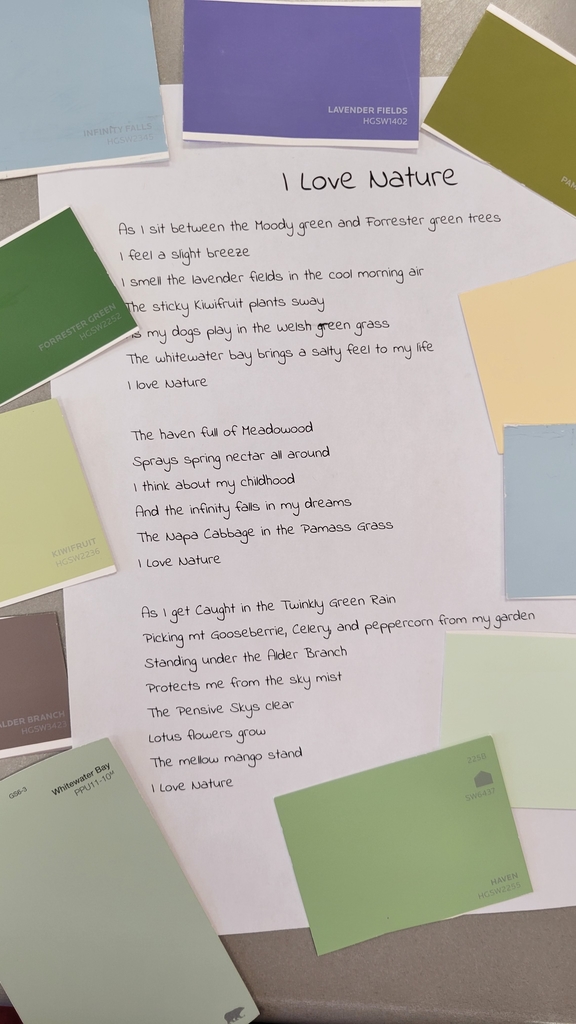 INFINITY FALLS
LAVENDER FIELDS
HGSW1402
I Love Nature
As I sit between the Moody green and Forrester green trees
I feel a slight breeze
I smell the lavender fields in the cool morning air
The sticky Kiwifruit plants sway
my dogs play in the welsh green grass
The whitewater bay brings a salty feel to my life
I love Nature
FORRESTER GREEN
HGSW2252
The haven full of Meadowood
Sprays spring nectar all around
I think about my childhood
And the infinity falls in my dreams
The Napa Cabbage in the Pamass Grass
I Love Nature
KIWIFRUIT
HGSW2236
As I get Caught in the Twinkly Green Rain
Picking mt Gooseberrie, Celery, and peppercorn from my garden
Standing under the Alder Branch
Protects me from the sky mist
The Pensive Skys clear
Lotus flowers grow
The mellow mango stand
I Love Nature
ALDER BRANCH
HGSW3423
QS6-3
Whitewater Bay
PPU11-10
2256
SW6437
HAVEN
HGSW2255